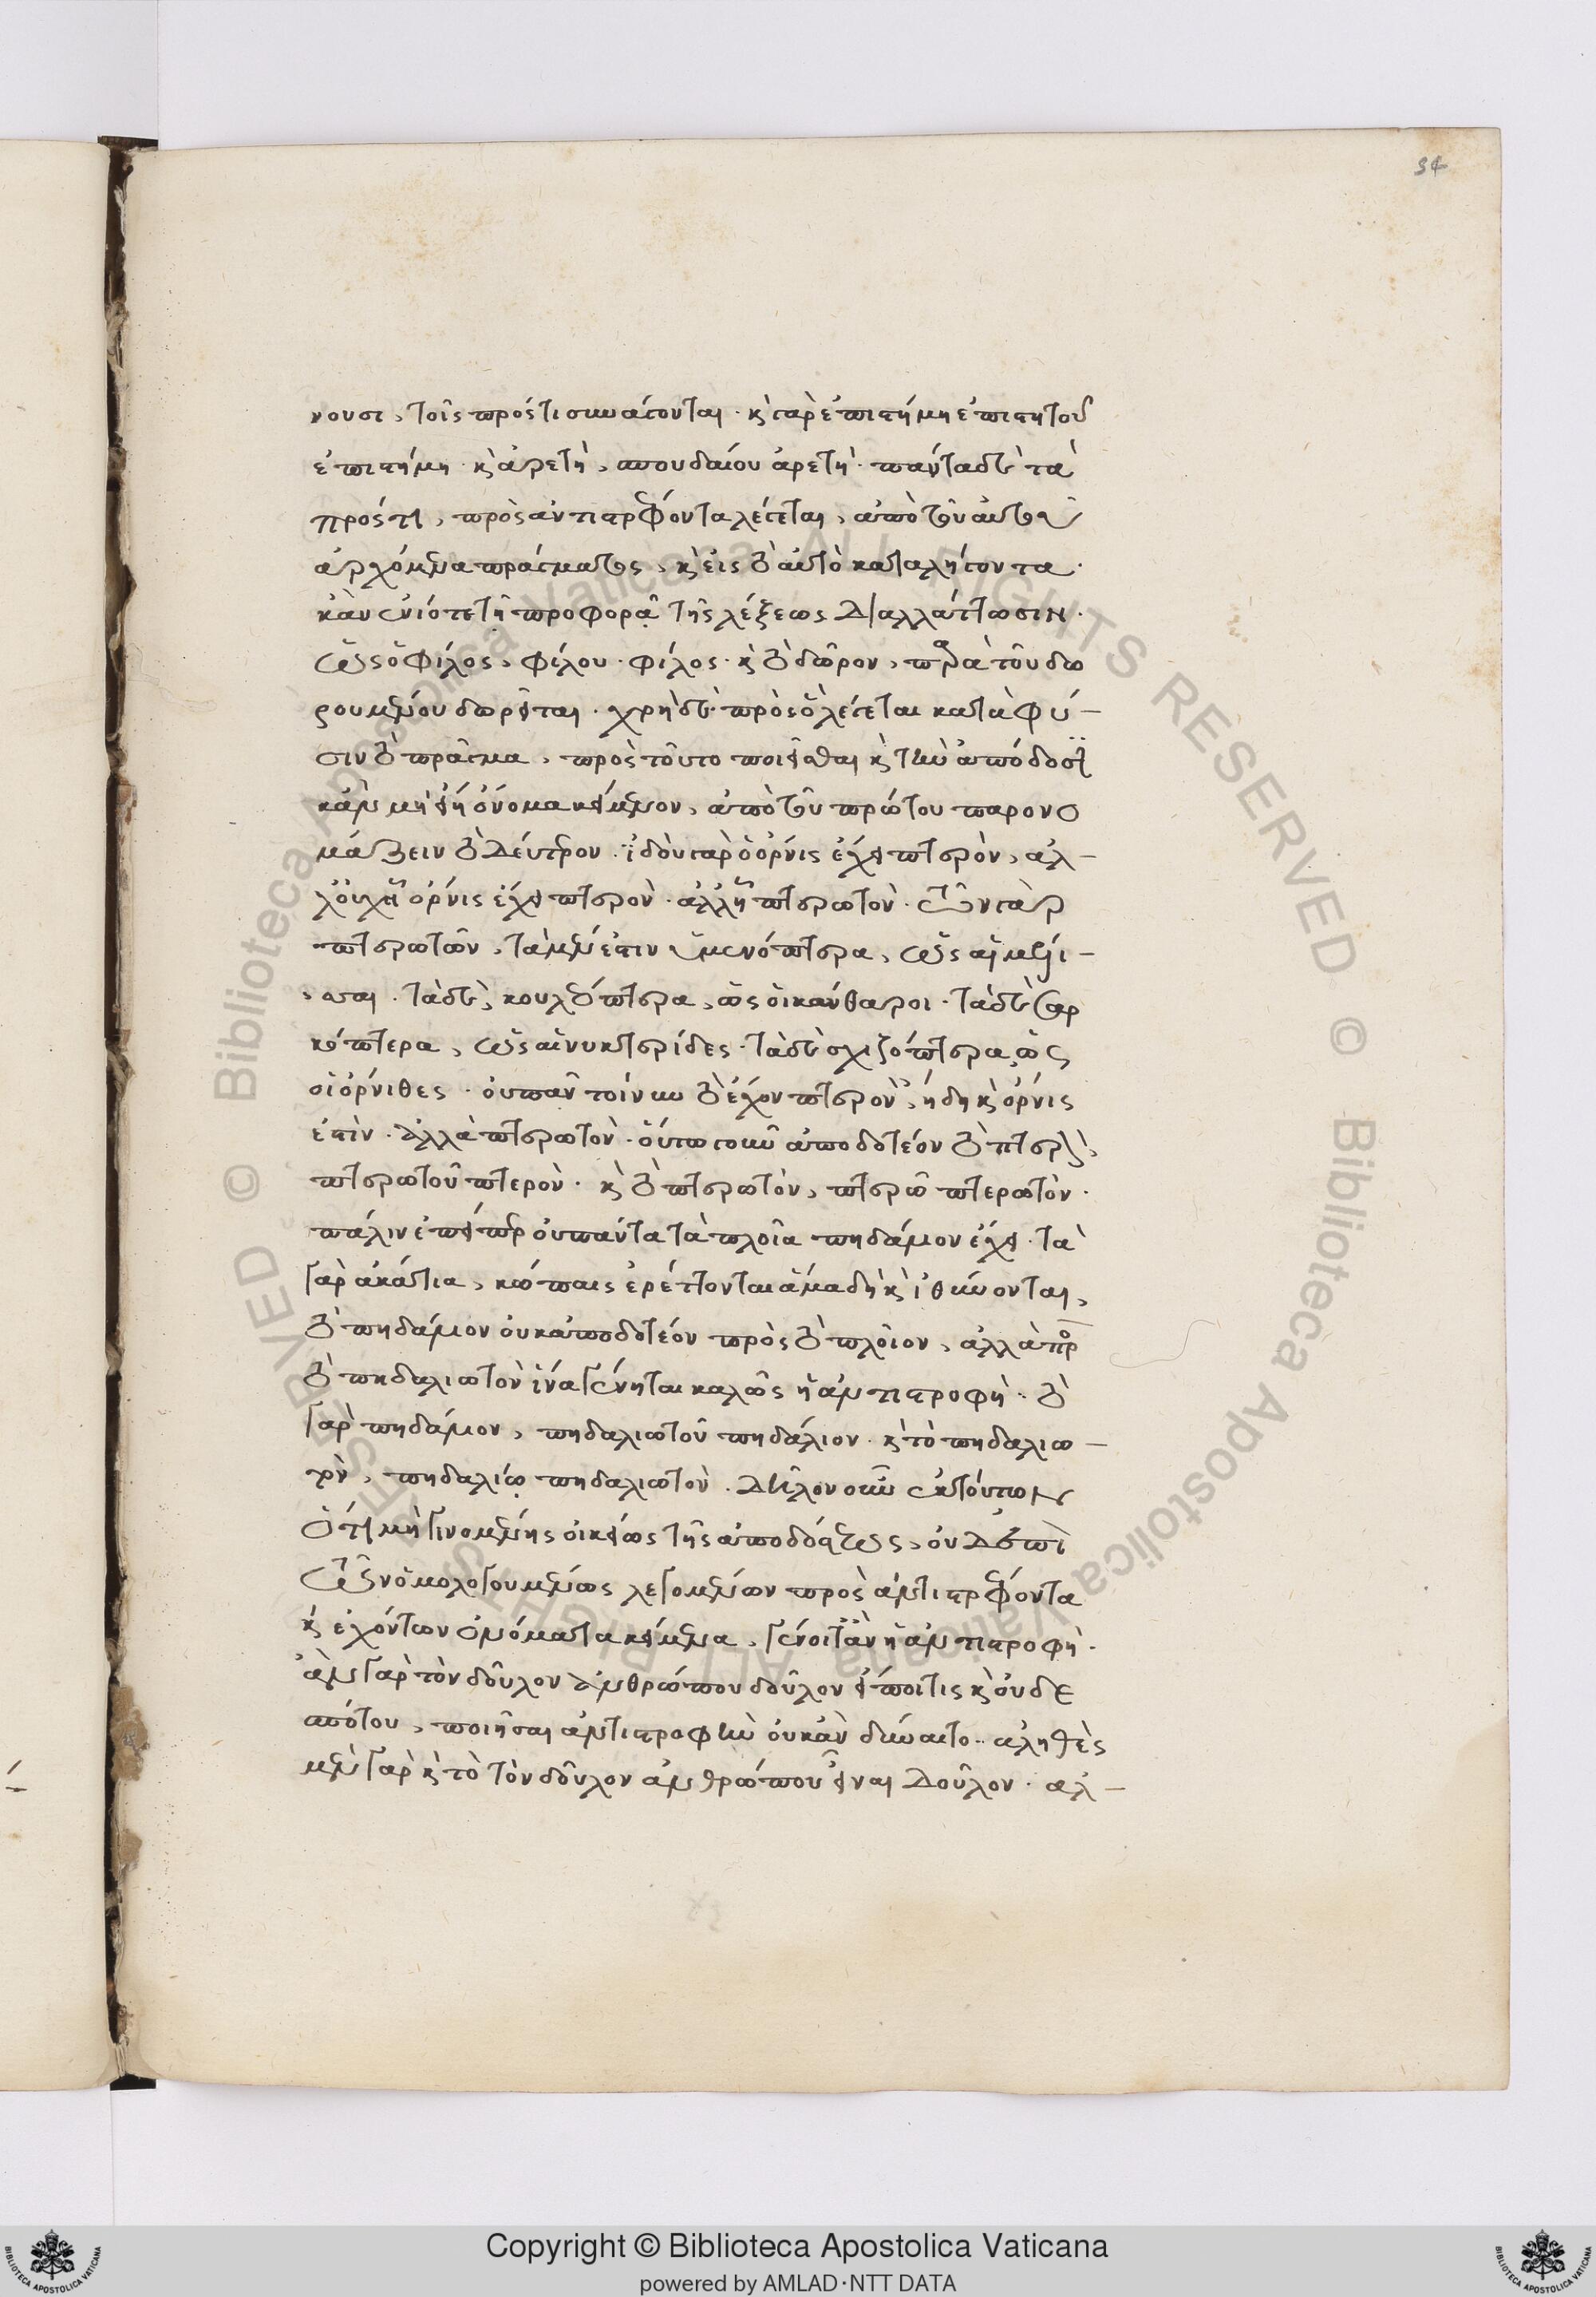 34
νουσι, τοῖς πρός τι συνάγονται. κ̀ γὰρ ἐπιστήμη ἐπιστητοῦ
ἐπιστήμη. κ̀ ἀρετὴ, σπουδαίου ἀρετή. πάντα δὲ τὰ
πρός τι, πρὸς ἀντιστρέφοντα λέγεται, ἀπὸ τοῦ αὐτοῦ
ἀρχόμενα πράγματος, κ̀ εἰς τὸ αὐτὸ καταλήγοντα.
κἂν ἐνίοτε τῇ προφορᾷ τῆς λέξεως διαλλάττωσιν.
ὡς ὁ φίλος, φίλου φίλος. κ̀ τὸ δῶρον, παρὰ τοῦ δω
ρουμένου δωρεῖται. χρὴ δὲ πρὸς ὃ λέγεται κατὰ φύ-
σιν τὸ πρᾶγμα, πρὸς τοῦτο ποιεῖσθαι κ̀ τὴν ἀπόδοσιν
κἂν μὴ εἴη ὄνομα κείμενον, ἀπὸ τοῦ πρώτου παρονο
μάζειν τὸ δεύτερον. ἰδοὺ γὰρ ὁ ὄρνις ἔχει πτερὸν, ἀλ-
λ' οὐχ ᾗ ὄρνις ἔχει πτερὸν. ἀλλ' ᾗ πτερωτὸν. τῶν γὰρ
πτερωτῶν, τὰ μέν ἐστιν ὑμενόπτερα, ὡς αἱ μέλι-
σσαι. τὰ δὲ, κουλεόπτερα, ὡς οἱ κάνθαροι. τὰ δὲ σαρ
κόπτερα, ὡς αἱ νυκτερίδες. τὰ δὲ σχιζόπτερα, ὡς
οἱ ὄρνιθες. οὐ πᾶν τοίνυν τὸ ἔχον πτερὸν, ἤδη κ̀ ὄρνις
ἐστὶν. ἀλλὰ πτερωτὸν. οὕτω γοῦν ἀποδοτέον τὸ πτερὸν,
πτερωτοῦ πτερὸν. κ̀ τὸ πτερωτὸν, πτερῷ πτερωτὸν.
πάλιν ἐπείπερ οὐ πάντα τὰ πλοῖα πηδάλιον ἔχει. τὰ
γὰρ ἀκάτια, κώπαις ἐρέττονται ἅμα δὴ κ̀ ἰθύνονται,
τὸ πηδάλιον οὐκ ἀποδοτέον πρὸς τὸ πλοῖον, ἀλλὰ πρὸς
τὸ πηδαλιωτὸν ἵνα γένηται καλῶς ἡ ἀντιστροφὴ. τὸ
γὰρ πηδάλιον, πηδαλιωτοῦ πηδάλιον. κ̀ τὸ πηδαλιω-
τὸν, πηδαλίῳ πηδαλιωτὸν. δῆλον οὖν ἐκ τούτων
ὅτι μὴ γινομένης οἰκείως τῆς ἀποδόσεως, οὐδ' ἐπὶ
τῶν ὁμολογουμένως λεγομένων πρὸς ἀντιστρέφοντα
κ̀ ἐχόντων ὀνόματα κείμενα, γένοιτ' ἂν ἡ ἀντιστροφὴ.
ἂν γὰρ τὸν δοῦλον ἀνθρώπου δοῦλον εἴποι τις κ̀ οὐ δε
σπότου, ποιῆσαι ἀντιστροφὴν οὐκ ἂν δύναιτο. ἀληθὲς
μὲν γὰρ κ̀ τὸ τὸν δοῦλον ἀνθρώπου εἶναι δοῦλον. ἀλ-
Copyright © Biblioteca Apostolica Vaticana
powered by AMLAD·NTT DATA